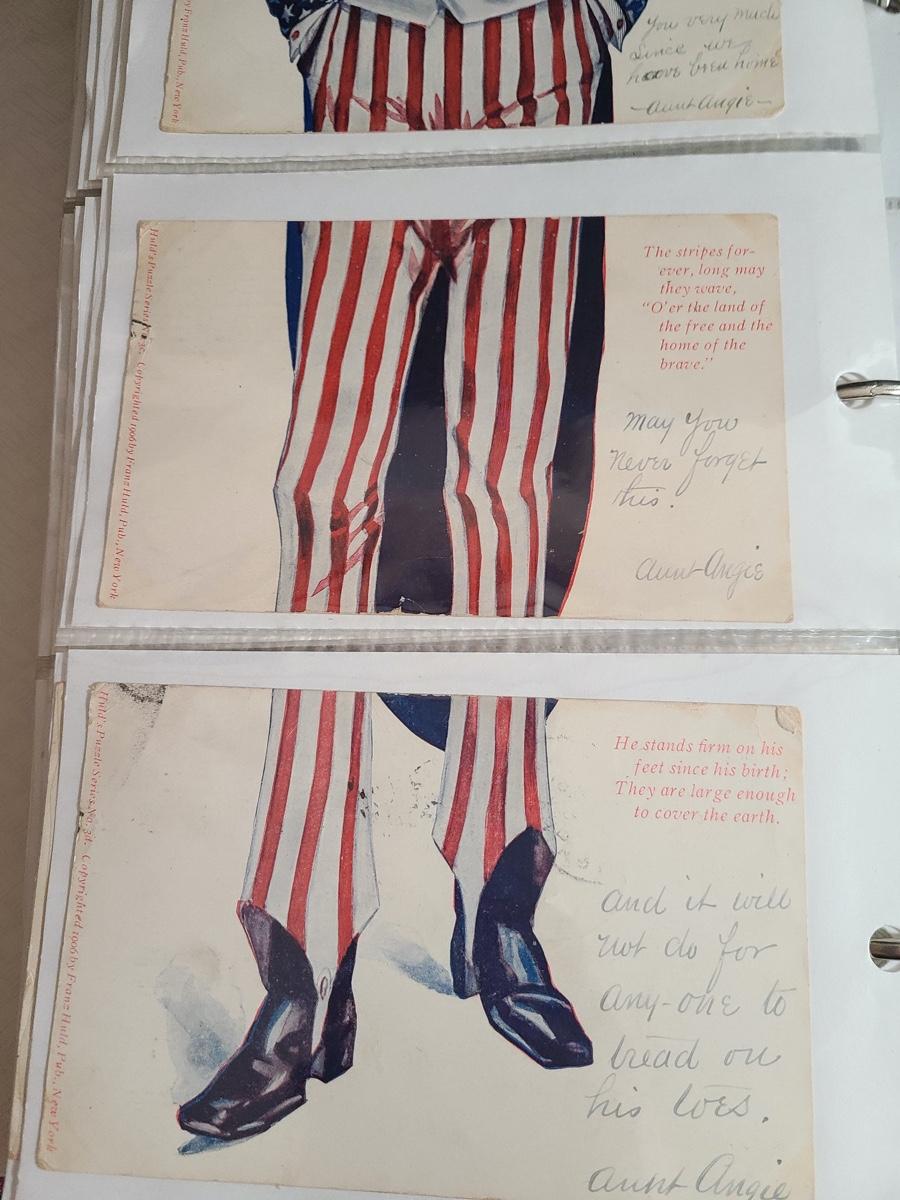 by Franz Huld, Pub., New York
You very much
Since we
have been home
—Aunt Angie—
Huld's Puzzle Series, No. 3c. Copyrighted 1906 by Franz Huld, Pub., New York
The stripes for-
ever, long may
they wave,
"O'er the land of
the free and the
home of the
brave."
May you
Never forget
this.
Aunt Angie
Huld's Puzzle Series, No. 3d. Copyrighted 1906 by Franz Huld, Pub., New York
He stands firm on his
feet since his birth;
They are large enough
to cover the earth.
and it will
not do for
any-one to
tread on
his toes.
Aunt Angie